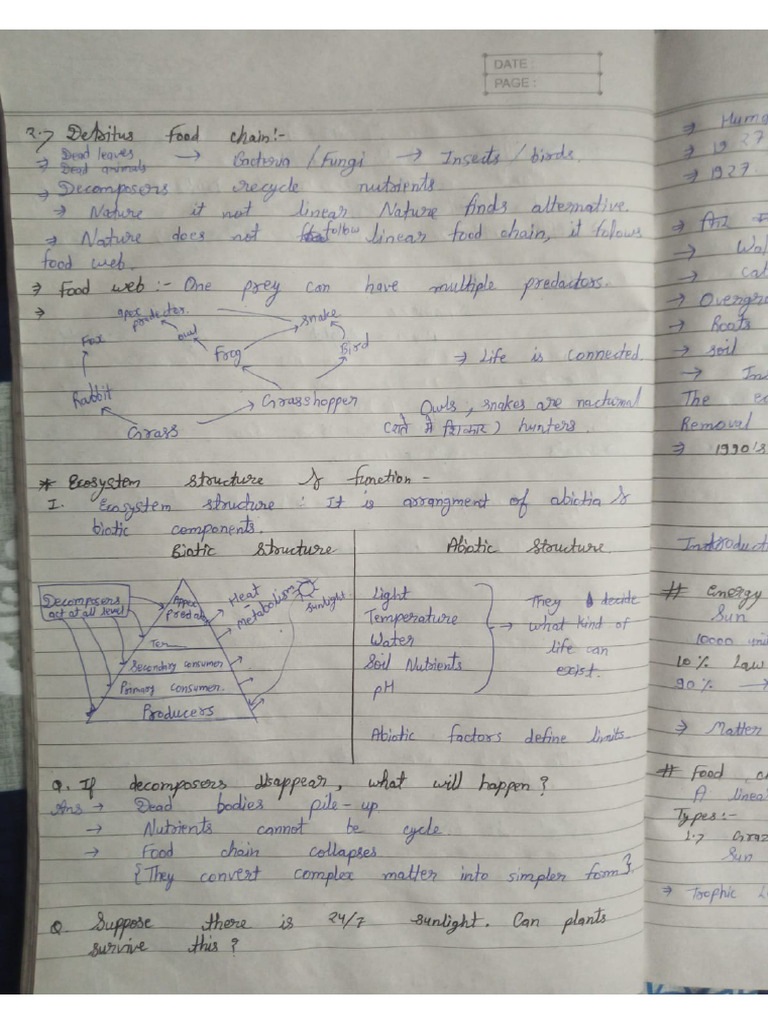 DATE :
PAGE :
2.7 Detritus food chain:-
⇒ Dead leaves
Dead animals → Bacteria / Fungi → Insects / birds.
→ Decomposers recycle nutrients
→ Nature it not linear Nature finds alternative.
→ Nature does not follow linear food chain, it follows
food web.
⇒ Food web :- One prey can have multiple predactors.
⇒ apex predactor.
snake
Fox
owl
Frog
Bird
⇒ Life is connected.
Rabbit
Grasshopper
Grass
Owls, snakes are nacturnal
(रात में शिकार) hunters.
* Ecosystem structure & function -
I. Ecosystem structure : It is arrangment of abiotia &
biotic components.
Biotic structure
Abiotic structure.
Decomposers
act at all level
Apex
predator
Heat
metabolism
sunlight
Ter
Secondary consumer
Primary consumer.
Producers
Light
Temperature
Water
Soil Nutrients
pH
→ They decide
what kind of
life can
exist.
Abiotic factors define limits.
Q. If decomposers disappear, what will happen?
Ans → Dead bodies pile-up.
→ Nutrients cannot be cycle.
→ Food chain collapses
{They convert complex matter into simpler form}.
Q. Suppose there is 24/7 sunlight. Can plants
survive this?
⇒ Huma
⇒ 1927
⇒ 1927.
→ Wal
→ cat
→ Overgra
→ Roots
→ soil
→ In
The ec
Removal
⇒ 1990's
Introduct
# Energy
Sun
10000 uni
10% Law
90% →
⇒ Matter
# Food c
A linea
Types:-
1.7 Graz
Sun
⇒ Trophic L